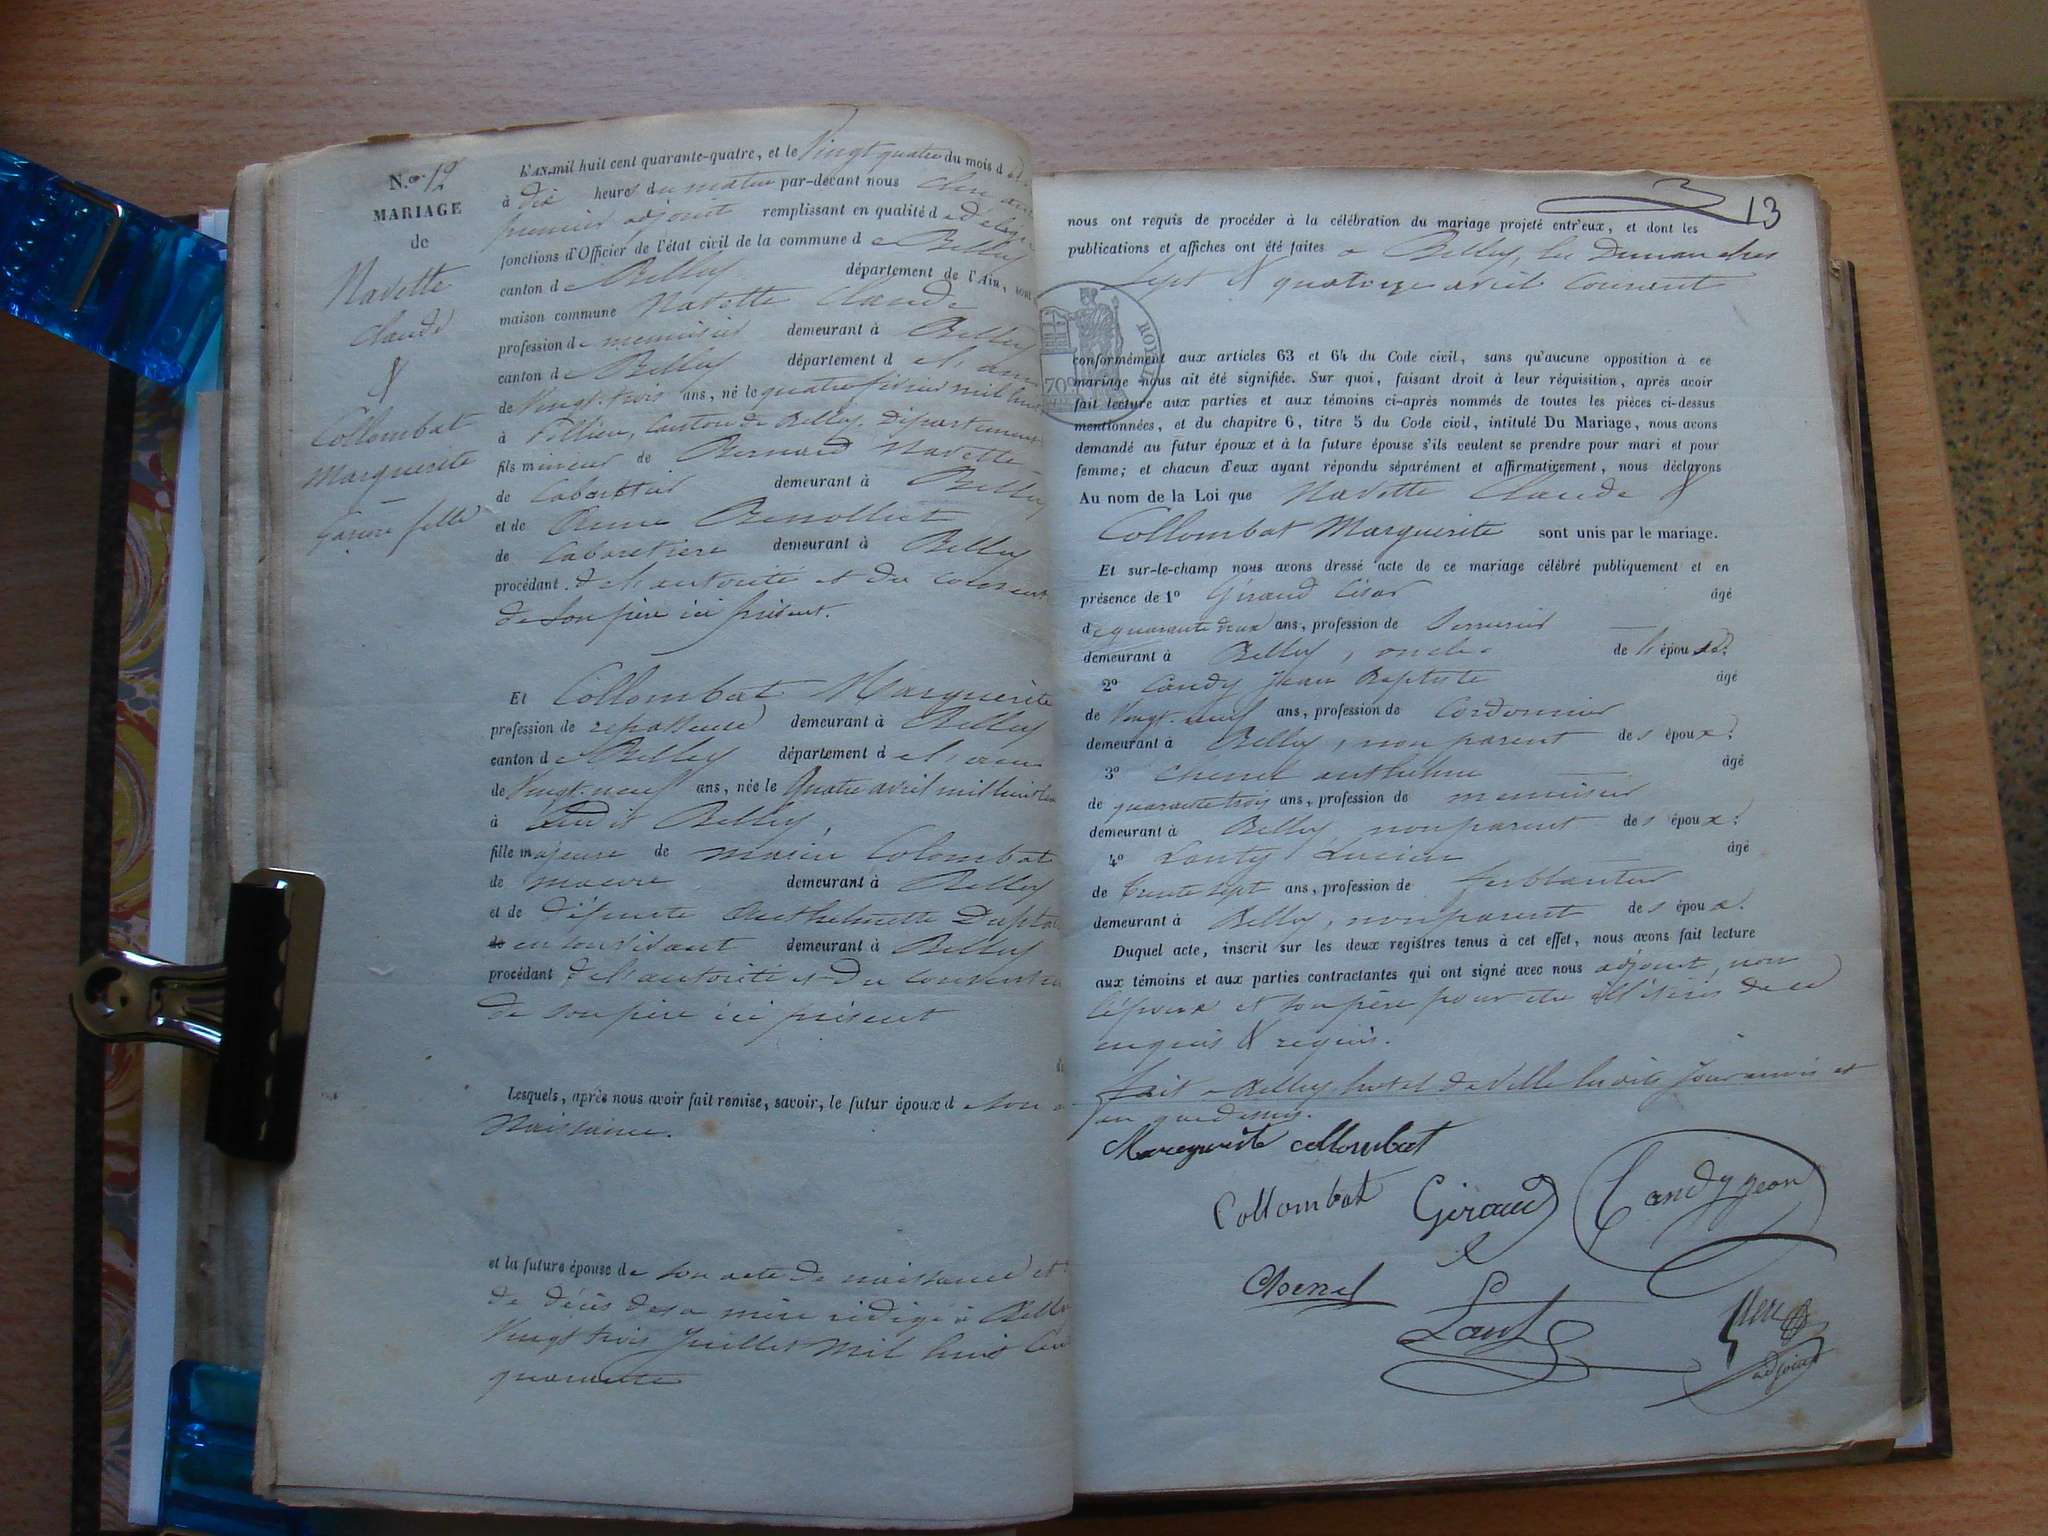 N.° 12
MARIAGE
de
Navette
Claude
&
Collombat
Marguerite
Garçon fille
L'AN mil huit cent quarante-quatre, et le Vingt quatre du mois d
à dix heures du matin par-devant nous
premier adjoint remplissant en qualité de délégué
fonctions d'Officier de l'état civil de la commune de Belley
canton de Belley département de l'Ain, sont
maison commune Navette Claude
profession de menuisier demeurant à Belley
canton de Belley département de l'ain
de Vingt-trois ans, né le quatre février mil huit
à canton de Belley, Département
fils mineur de Bernard Navette
de Cabaretier demeurant à Belley
et de Anne
de Cabaretière demeurant à Belley
procédant de l'autorité et du consent
de son père ici présent.
Et Collombat Marguerite
profession de repasseuse demeurant à Belley
canton de Belley département de l'ain
de Vingt-neuf ans, née le Quatre avril mil huit cent
à Belley
fille majeure de Colombat
de demeurant à Belley
et de défunte Anthelmette
de en son vivant demeurant à Belley
procédant de l'autorité et du consentem
de son père ici présent
Lesquels, après nous avoir fait remise, savoir, le futur époux de son a
Naissance.
et la future épouse de son acte de naissance et
de décès de sa mère rédigé à Belley
Vingt trois Juillet mil huit Cent
quarante
13
nous ont requis de procéder à la célébration du mariage projeté entr'eux, et dont les
publications et affiches ont été faites à Belley, les Dimanches
Sept & quatorze avril Courant
ROY
70
conformément aux articles 63 et 64 du Code civil, sans qu'aucune opposition à ce
mariage nous ait été signifiée. Sur quoi, faisant droit à leur réquisition, après avoir
fait lecture aux parties et aux témoins ci-après nommés de toutes les pièces ci-dessus
mentionnées, et du chapitre 6, titre 5 du Code civil, intitulé Du Mariage, nous avons
demandé au futur époux et à la future épouse s'ils veulent se prendre pour mari et pour
femme; et chacun d'eux ayant répondu séparément et affirmativement, nous déclarons
Au nom de la Loi que Navette Claude &
Collombat Marguerite sont unis par le mariage.
Et sur-le-champ nous avons dressé acte de ce mariage célébré publiquement et en
présence de 1° Giraud César âgé
de quarante deux ans, profession de Serrurier
demeurant à Belley, oncle de l'épouse.
2° Candy Jean Baptiste âgé
de Vingt-neuf ans, profession de Cordonnier
demeurant à Belley, non parent des époux.
3° Chenel anthelme âgé
de quarante trois ans, profession de menuisier
demeurant à Belley, non parent des époux.
4° Lanty Lucien âgé
de trente sept ans, profession de ferblantier
demeurant à Belley, non parent des époux.
Duquel acte, inscrit sur les deux registres tenus à cet effet, nous avons fait lecture
aux témoins et aux parties contractantes qui ont signé avec nous adjoint, non
l'époux et son père pour être illitérés de ce
enquis & requis.
fait à Belley hotel de ville lesdits jour mois et
an que dessus.
Marguerite collombat
Collombat Giraud Candy Jean
Chenel
Lanty
adjoint